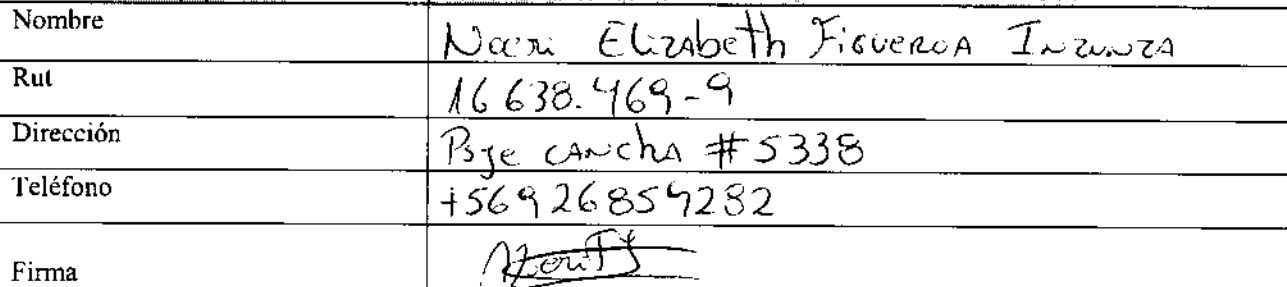 Nombre Noeri Elizabeth Figueroa Inzunza
Rut 16 638.469-9
Dirección Psje cancha #5338
Teléfono +569 26859282
Firma